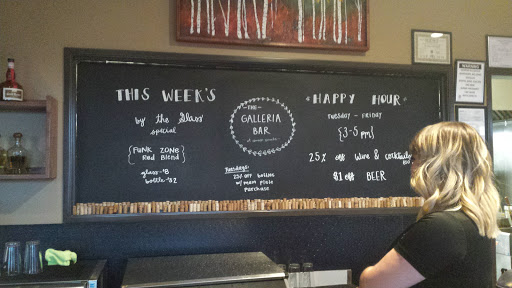 THIS WEEK'S
by the glass
special
{FUNK ZONE}
Red Blend
glass-
bottle-
-THE-
GALLERIA
BAR
Tuesdays:
25% OFF bottles
w/ main plate
purchase
*HAPPY HOUR*
TUESDAY - FRIDAY
{3-5 pm}
25% off wine & cocktails
$1 off BEER
WARNING